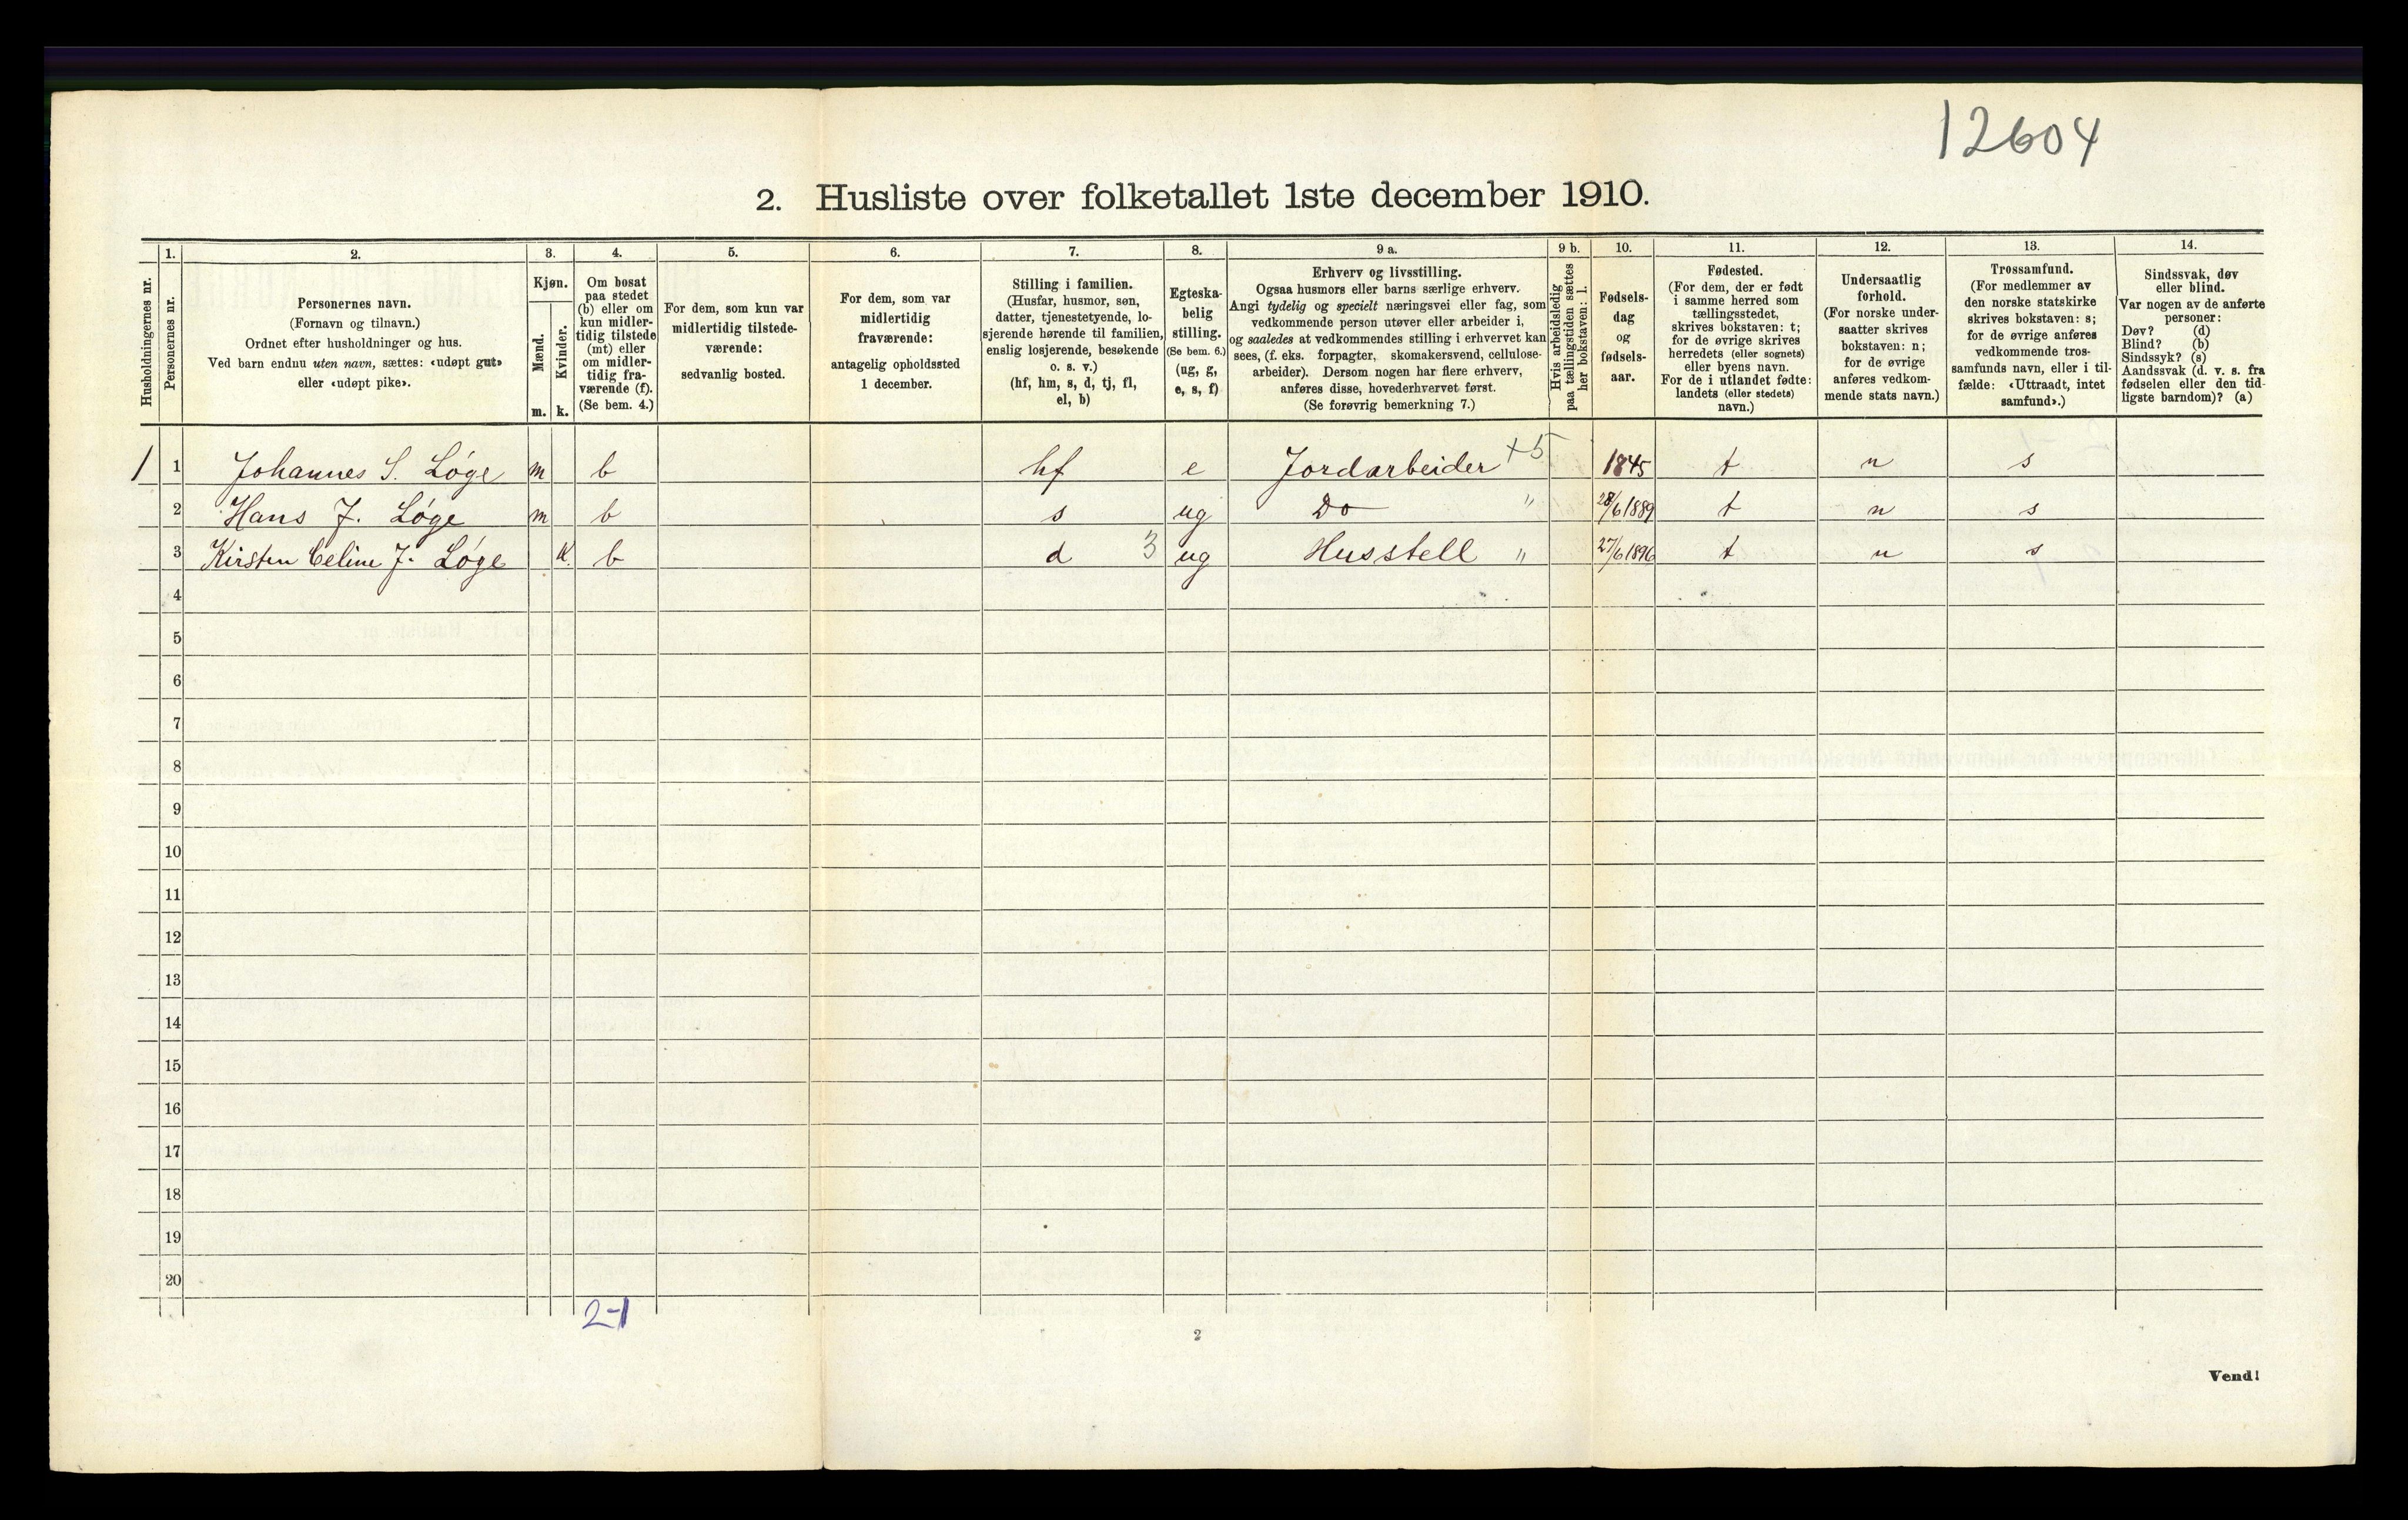 12604
2. Husliste over folketallet 1ste december 1910.
Husholdningernes nr.
1.
Personernes nr.
2.
Personernes navn.
(Fornavn og tilnavn.)
Ordnet efter husholdninger og hus.
Ved barn endnu uten navn, sættes: «udøpt gut»
eller «udøpt pike».
3.
Kjøn.
Mænd.
Kvinder.
m. k.
4.
Om bosat
paa stedet
(b) eller om
kun midler-
tidig tilstede
(mt) eller
om midler-
tidig fra-
værende (f).
(Se bem. 4.)
5.
For dem, som kun var
midlertidig tilstede-
værende:
sedvanlig bosted.
6.
For dem, som var
midlertidig
fraværende:
antagelig opholdssted
1 december.
7.
Stilling i familien.
(Husfar, husmor, søn,
datter, tjenestetyende, lo-
sjerende hørende til familien,
enslig losjerende, besøkende
o. s. v.)
(hf, hm, s, d, tj, fl,
el, b)
8.
Egteska-
belig
stilling.
(Se bem. 6.)
(ug, g,
e, s, f)
9 a.
Erhverv og livsstilling.
Ogsaa husmors eller barns særlige erhverv.
Angi tydelig og specielt næringsvei eller fag, som
vedkommende person utøver eller arbeider i,
og saaledes at vedkommendes stilling i erhvervet kan
sees, (f. eks. forpagter, skomakersvend, cellulose-
arbeider). Dersom nogen har flere erhverv,
anføres disse, hovederhvervet først.
(Se forøvrig bemerkning 7.)
9 b.
Hvis arbeidsledig
paa tællingstiden sættes
her bokstaven: l.
10.
Fødsels-
dag
og
fødsels-
aar.
11.
Fødested.
(For dem, der er født
i samme herred som
tællingsstedet,
skrives bokstaven: t;
for de øvrige skrives
herredets (eller sognets)
eller byens navn.
For de i utlandet fødte:
landets (eller stedets)
navn.)
12.
Undersaatlig
forhold.
(For norske under-
saatter skrives
bokstaven: n;
for de øvrige
anføres vedkom-
mende stats navn.)
13.
Trossamfund.
(For medlemmer av
den norske statskirke
skrives bokstaven: s;
for de øvrige anføres
vedkommende tros-
samfunds navn, eller i til-
fælde: «Uttraadt, intet
samfund».)
14.
Sindssvak, døv
eller blind.
Var nogen av de anførte
personer:
Døv? (d)
Blind? (b)
Sindssyk? (s)
Aandssvak (d. v. s. fra
fødselen eller den tid-
ligste barndom)? (a)
1 1 Johannes S. Løge m b hf e Jordarbeider +5 1845 t n s
2 Hans J. Løge m b s ug Do " 28/6 1889 t n s
3 Kirsten Celine J. Løge k. b d 3 ug Husstell " 27/6 1896 t n s
4
5
6
7
8
9
10
11
12
13
14
15
16
17
18
19
20
2-1
2
Vend!